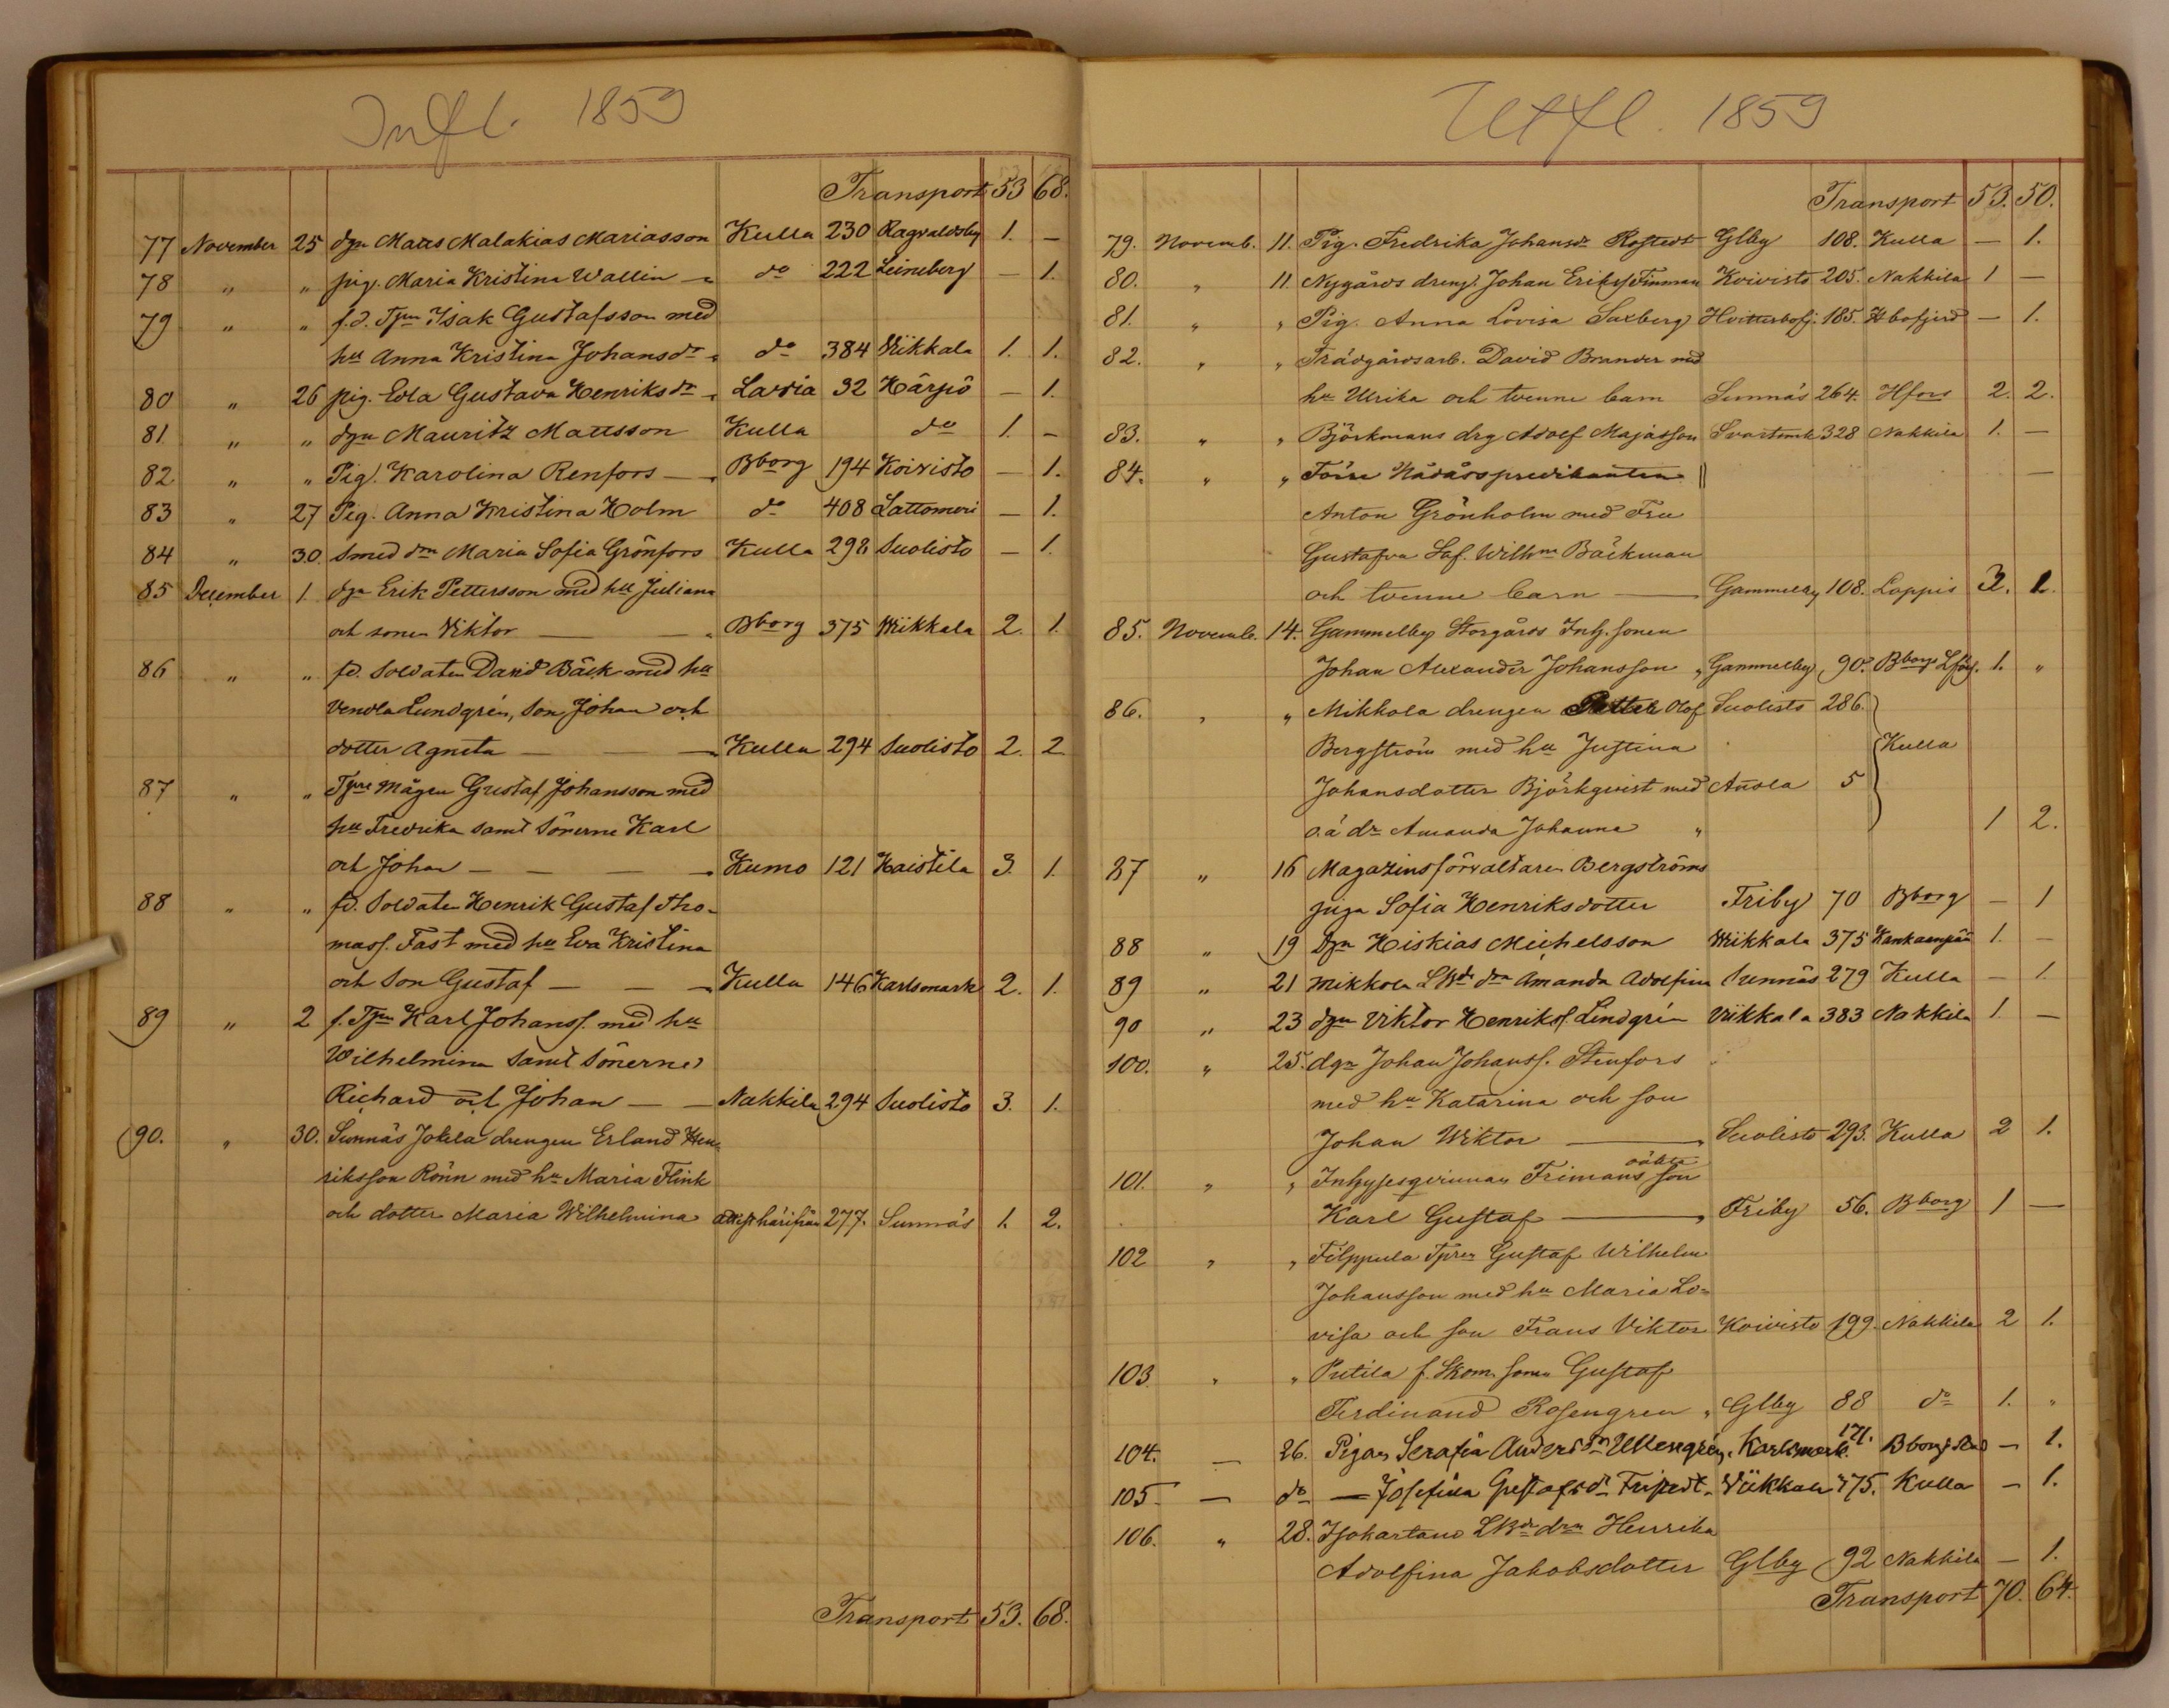 Infl. 1859
Transport 53 68.
77 November 25 dgn Matts Malakias Mariasson Kulla 230 Ragvaldsby 1. —
78 " " pig. Maria Kristina Wallin — do 222 Leineberg — 1.
79 " " f.d. Tpn Isak Gustafsson med
hu Anna Kristina Johansdr " do 384 Wiikkala 1. 1.
80 " 26 pig. Eva Gustava Henriksdr " Lavia 32 Härpö — 1.
81 " " dgn Mauritz Mattsson Kulla do 1. —
82 " " Pig. Karolina Renfors — Bborg 194 Koivisto — 1.
83 " 27 Pig. Anna Kristina Holm do 408 Lattomeri — 1.
84 " 30. Smed drn Maria Sofia Grönfors Kulla 298 Suolisto — 1.
85 December 1. dgn Erik Pettersson med hu Juliana
och sonen Viktor — — Bborg 375 Wiikkala 2. 1.
86 " " fd. Soldaten David Bäck med hu
Vendla Lundgrén, Son Johan och
dotter Agneta — — Kulla 294 Suolisto 2. 2
87 " " Tpre mågen Gustaf Johansson med
hu Fredrika samt Sönerne Karl
och Johan — — — Kumo 121 Haistila 3. 1.
88 " " fd. Soldaten Henrik Gustaf Tho-
mass. Fast med hu Eva Kristina
och Son Gustaf — — Kulla 146 Karlsmark 2. 1.
89 " 2 f. Tpn Karl Johanss. med hu
Wilhelmina samt Sönerne
Richard och Johan — — Nakkila 294 Suolisto 3. 1.
90. " 30. Sunnäs Jokela drengen Erland Hen-
riksson Rönn med hu Maria Flink
och dotter Maria Wilhelmina härifrån 277. Sunnäs 1. 2.
Transport 53. 68.
Utfl. 1859
Transport 53. 50.
79. Novemb. 11. Pig. Fredrika Johansdr Rostedt Glby 108. Kulla — 1.
80. " 11. Nygårds dreng. Johan Erikss Finman Koivisto 205. Nakkila 1 —
81. " " Pig. Anna Lovisa Saxberg Hvittisbofj. 185. Hbofjerd — 1.
82. " " Trädgårdsarb. David Brander med
hu Ulrika och tvenne barn Sunnäs 264. Hfors 2. 2.
83. " " Björkmans drg Adolf Majasson Svartsmk 328 Nakkila 1. —
84. " " Förre Nådårspredikanten —
Anton Grönholm med Fru
Gustafva Sof. Wilhma Bäckman
och tvenne barn — Gammelby 108. Loppis 3. 1.
85. Novemb. 14. Gammelby Storgårds Inh. sonen
Johan Alexander Johansson " Gammelby 90. Bborgs Lförs. 1. "
86. " " Mikkola drengen Olof Suolisto 286.
Bergström med hu Justina Kulla
Johansdotter Björkqvist med Anola 5
o.ä dr Amanda Johanna " 1 2.
87 " 16 Magazinsförvaltaren Bergströms
piga Sofia Henriksdotter Friby 70 Bborg — 1
88 " 19 Dgn Hiskias Michelsson Wiikkala 375 Kankaanpää 1. —
89 " 21 Mikkola LBdr drn Amanda Adolfina Sunnäs 279 Kulla — 1.
90 " 23 dgn Viktor Henrikss. Lindgrén Viikkala 383 Nakkila 1. —
100. " 25. dgn Johan Johanss. Stenfors
med hu Katarina och son
Johan Wiktor — Suolisto 293. Kulla 2 1.
101. " " Inhysesqvinnan Frimans oäkta son
Karl Gustaf — Friby 56. Bborg 1 —
102 " " Filppula Tpren Gustaf Wilhelm
Johansson med hu Maria Lo-
visa och son Frans Viktor Koivisto 199. Nakkila 2 1.
103. " " Putila f. Skom. sonen Gustaf
Ferdinand Rosengren " Glby 88 do 1. "
104. — 26. Pigan Serafia Andersdr Ullengrén. Karlsmark. 171. Bborgs stad — 1.
105 — do — Josefina Gustafsdr Fristedt. Viikkala 475. Kulla — 1.
106. " 28. Isokartano LBdr drn Henrika
Adolfina Jakobsdotter Glby 92 Nakkila — 1.
Transport 70. 64.